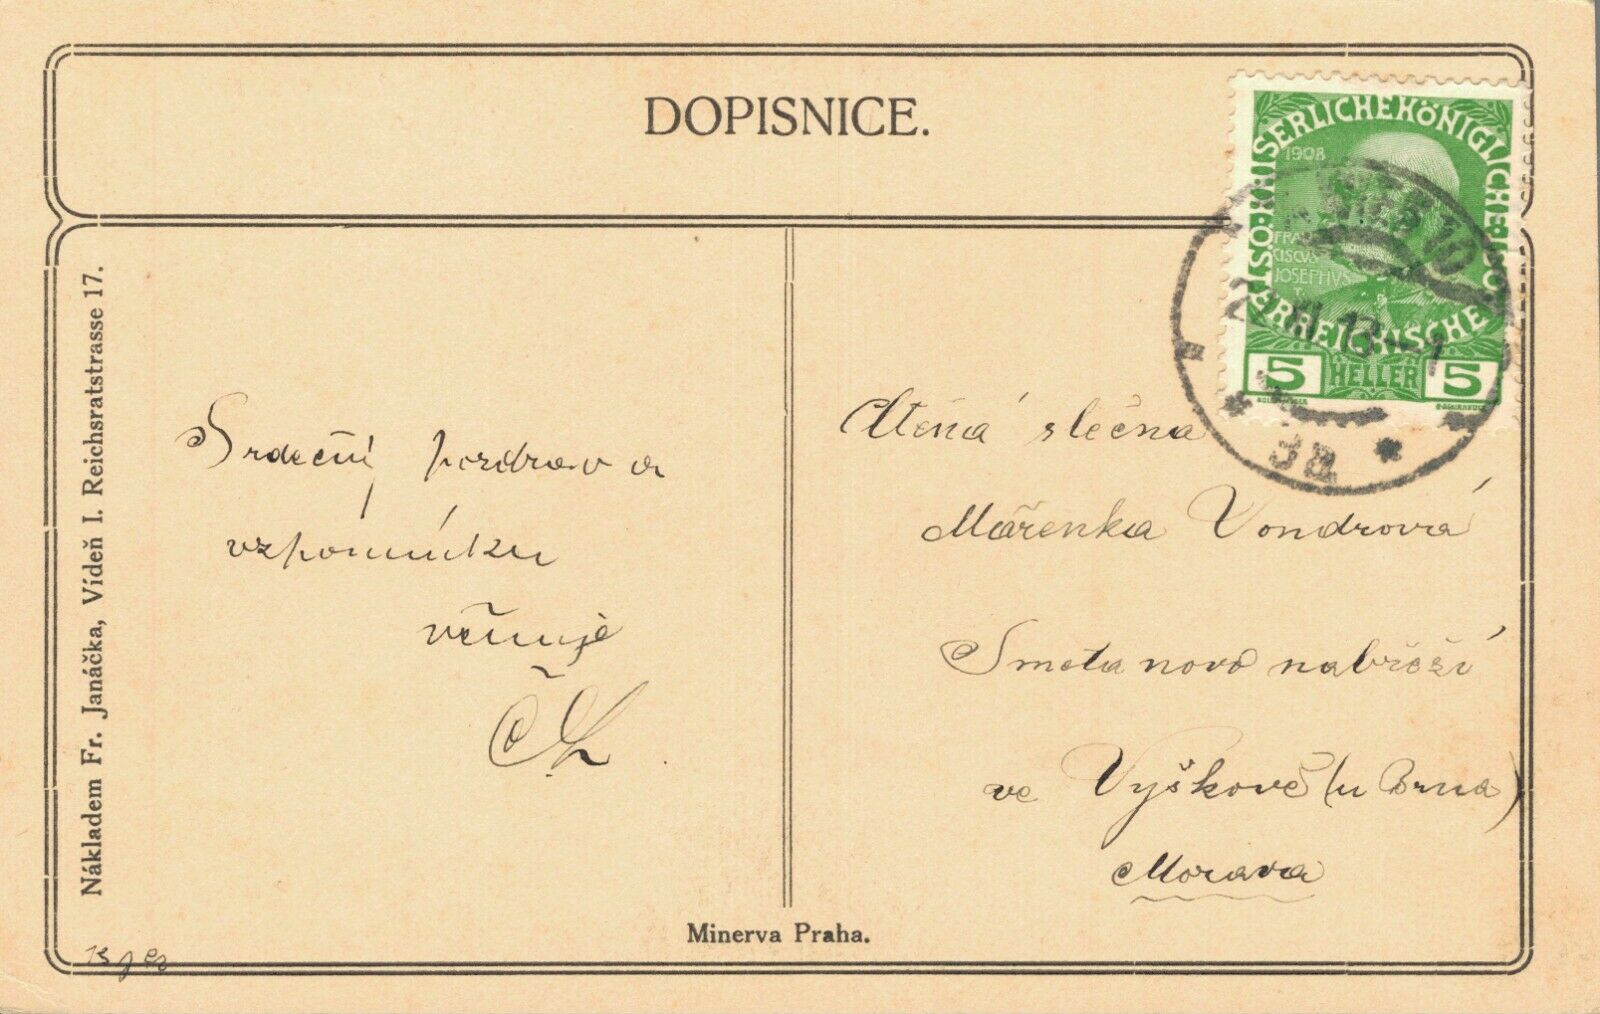 DOPISNICE.
KAISERLICHE KÖNIGLICHE
ÖSTERREICHISCHE
1908
FRAN
CISCVS
JOSEPHVS
I.
5 HELLER 5
10
13-1
3a
Nákladem Fr. Janáčka, Vídeň I. Reichsratstrasse 17.
Srdečný pozdrav a
vzpomínku
věnuje
Ctěná slečna
Mařenka Vondrová
Smetanovo nabřeží
ve Vyškově (u Brna)
Morava
Minerva Praha.